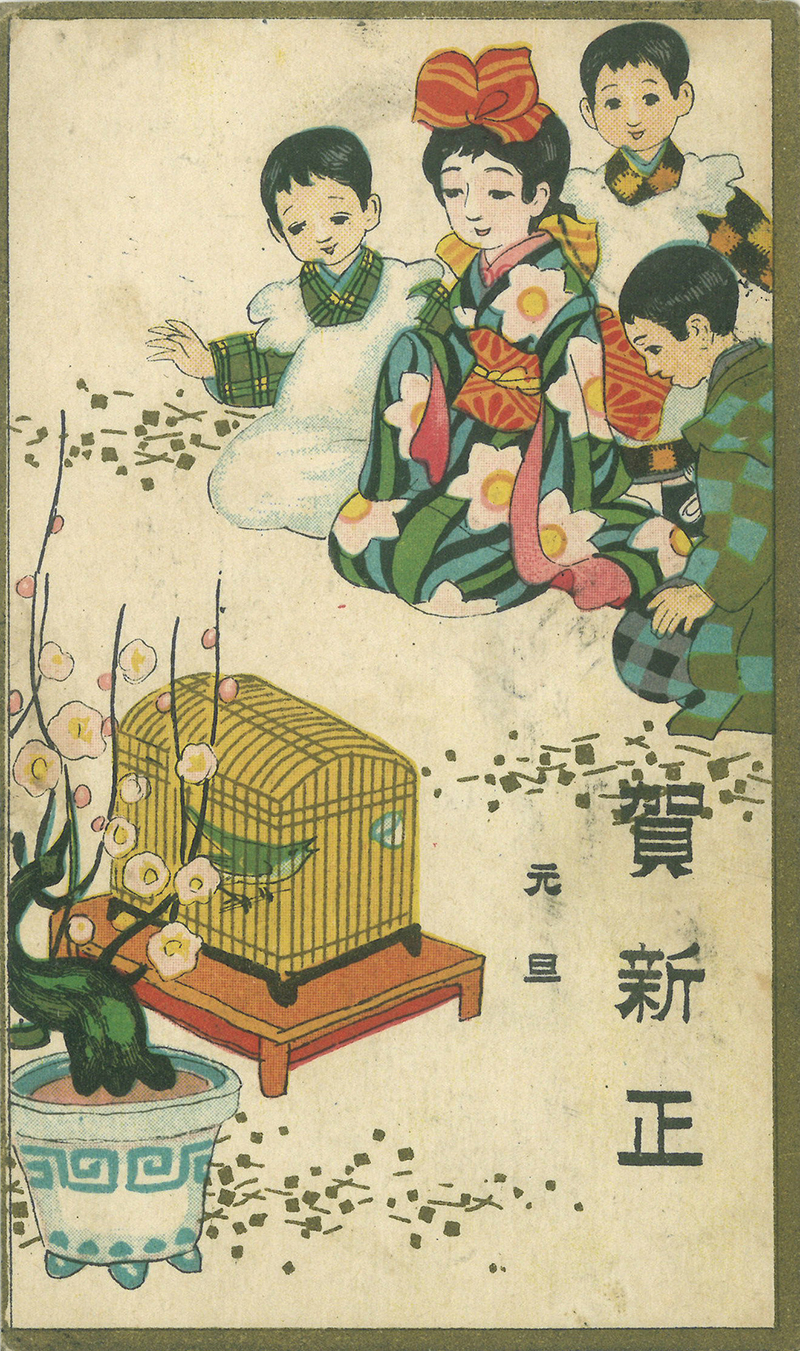 賀新正
元旦